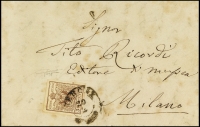 Sigr
Tito Ricordi
Editore di musica
Milano